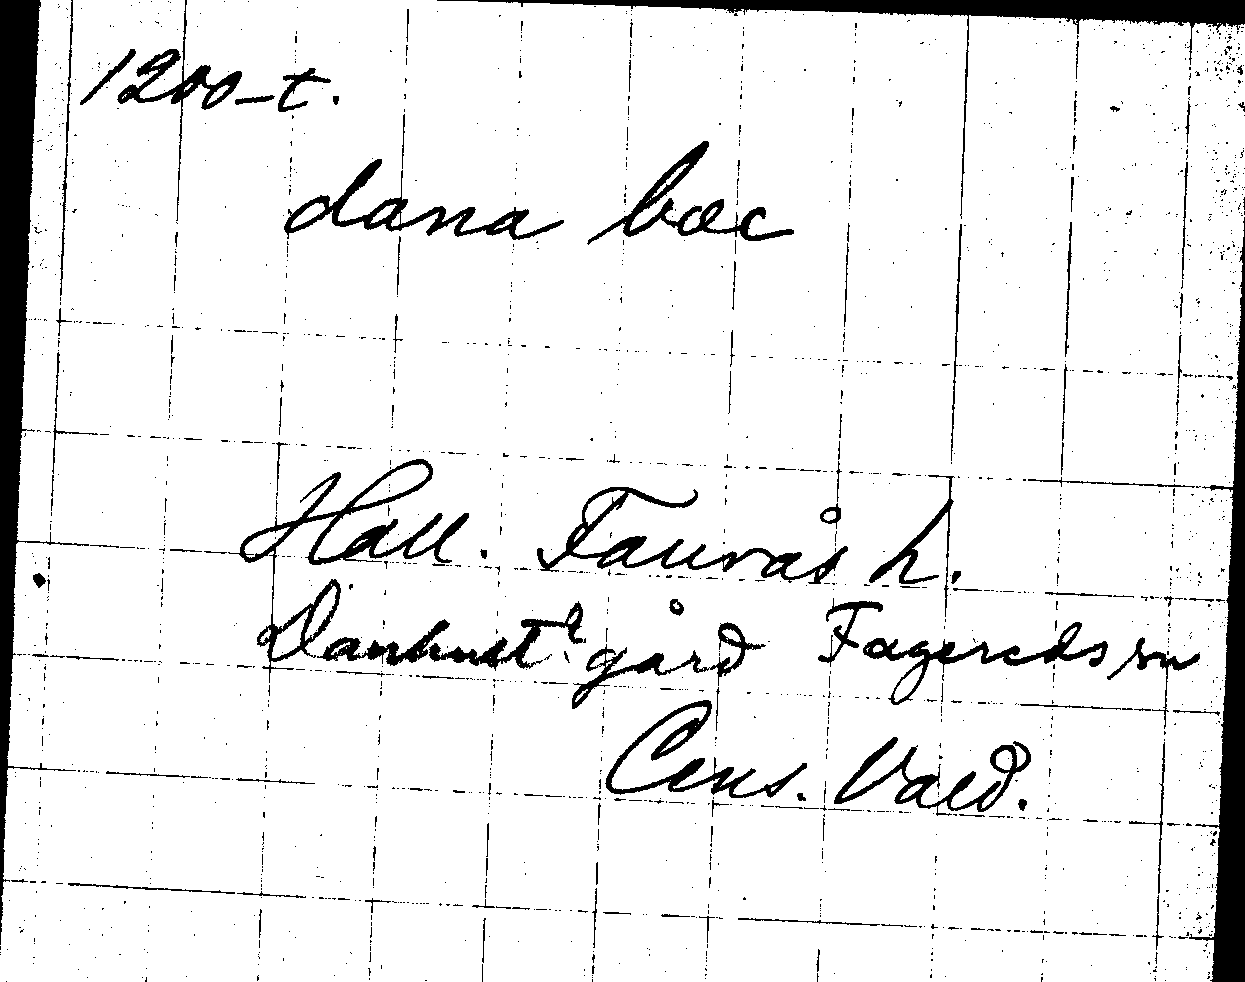 1200-t.
dana bæc
Hall. Faurås h.
Danhult? gård Fagereds sn
Cens. Vald.